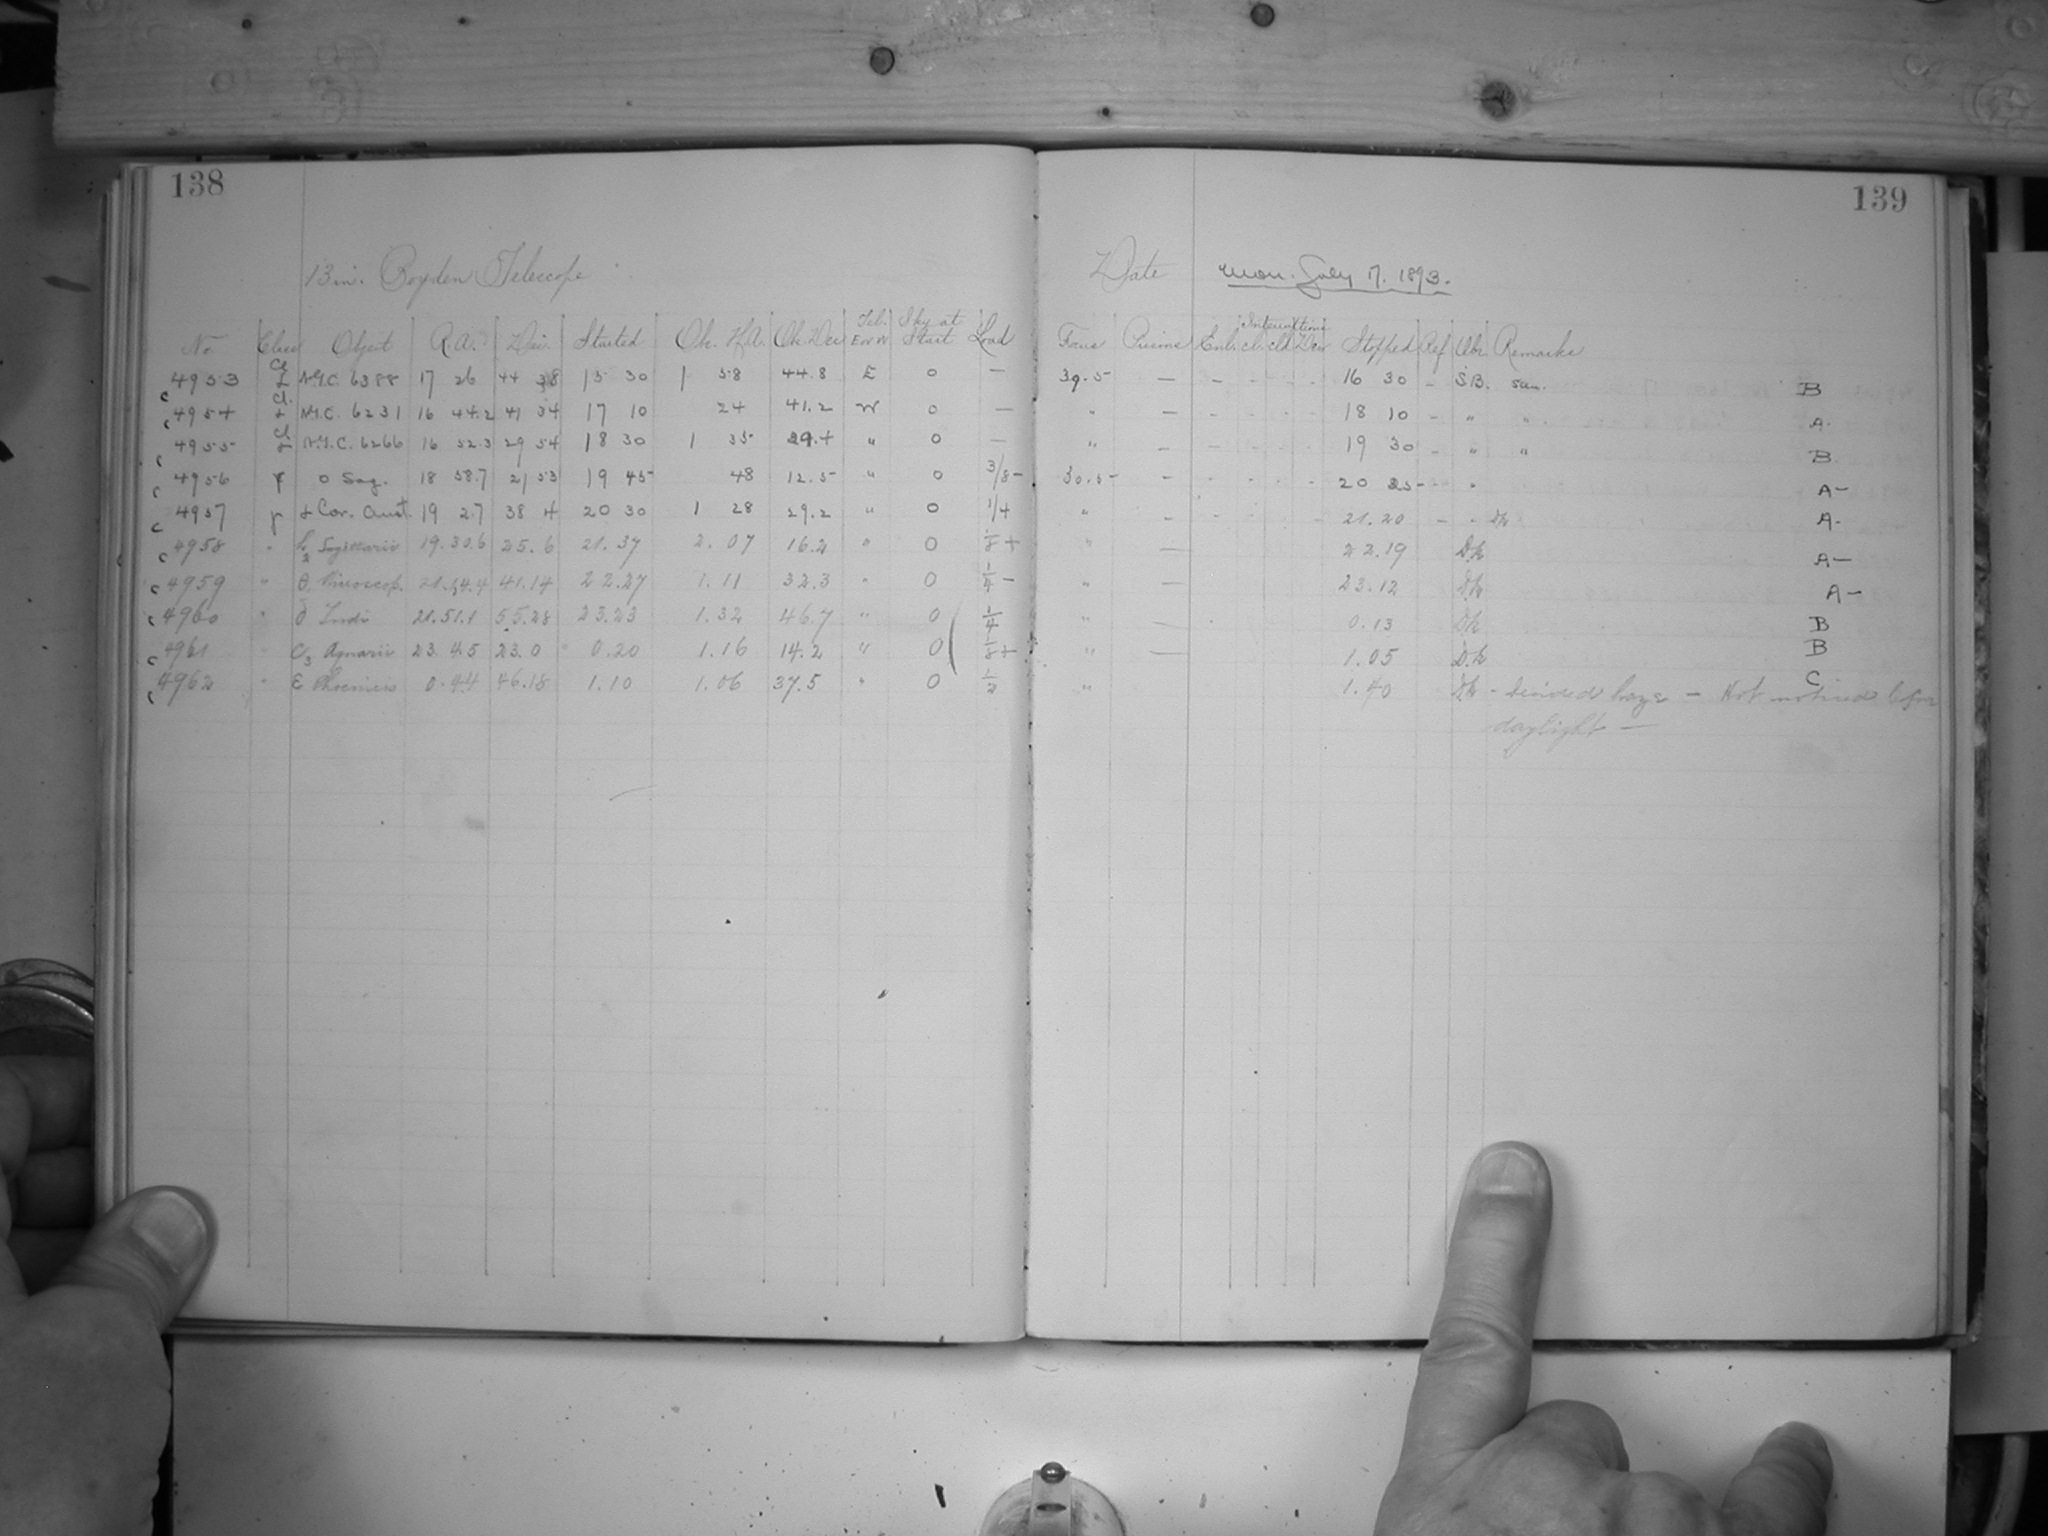 138
13 in. Boyden Telescope
No Class Object R.A. Dec. Started Ob. H.A. Ob. Dec Tel. E or W Sky at Start Load
4953 Cl. L N.G.C. 6388 17 26 44 38 15 30 1 58 44.8 E 0 —
4954 Cl. N.G.C. 6231 16 44.2 41 34 17 10 24 41.2 W 0 —
4955 Cl. N.G.C. 6266 16 52.3 29 54 18 30 1 35 29.4 " 0 —
4956 o Sag. 18 58.7 21 53 19 45 48 12.5 " 0 3/8 -
4957 Cor. Aust. 19 2.7 38 4 20 30 1 28 29.2 " 0 1/4
4958 " h2 Sagittarii 19.30.6 25.6 21.37 2.07 16.2 " 0 1/8 +
4959 " θ 41.14 22.27 1.11 32.3 " 0 1/4 -
4960 " δ Indi 21.51.1 55.28 23.23 1.32 46.7 " 0 1/4
4961 " c3 Aquarii 23.4.5 23.0 0.20 1.16 14.2 " 0 1/8 +
4962 " ε Phoenicis 0.4.4 46.18 1.10 1.06 37.5 " 0 1/2
139
Date Mon. July 17. 1893.
Interruptions
Focus Prisms Enl. cl. cld Dew Stopped Ref Obs. Remarks
39.5 — - - - - 16 30 - S.B. B
" — - - - - 18 10 - " " A-
" — - - - - 19 30 - " " B
30.5 — - - - - 20 25 - - " A-
" — - - - - 21.20 - " Dk A-
" — 22.19 Dk A-
" — 23.12 Dk A-
" — 0.13 Dk B
" — 1.05 Dk B
" 1.40 Dk - decided haze - Not noticed before C
daylight —